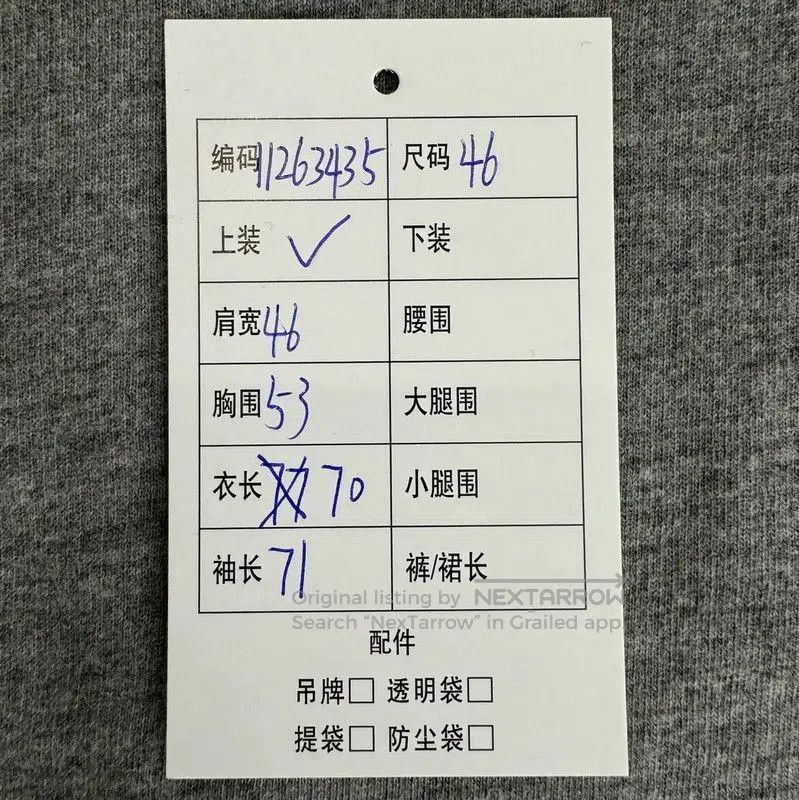 编码 11263435 尺码 46
上装 ✓ 下装
肩宽 46 腰围
胸围 53 大腿围
衣长 70 小腿围
袖长 71 裤/裙长
Original listing by NEXTARROW
Search “NexTarrow” in Grailed app
配件
吊牌□ 透明袋□
提袋□ 防尘袋□